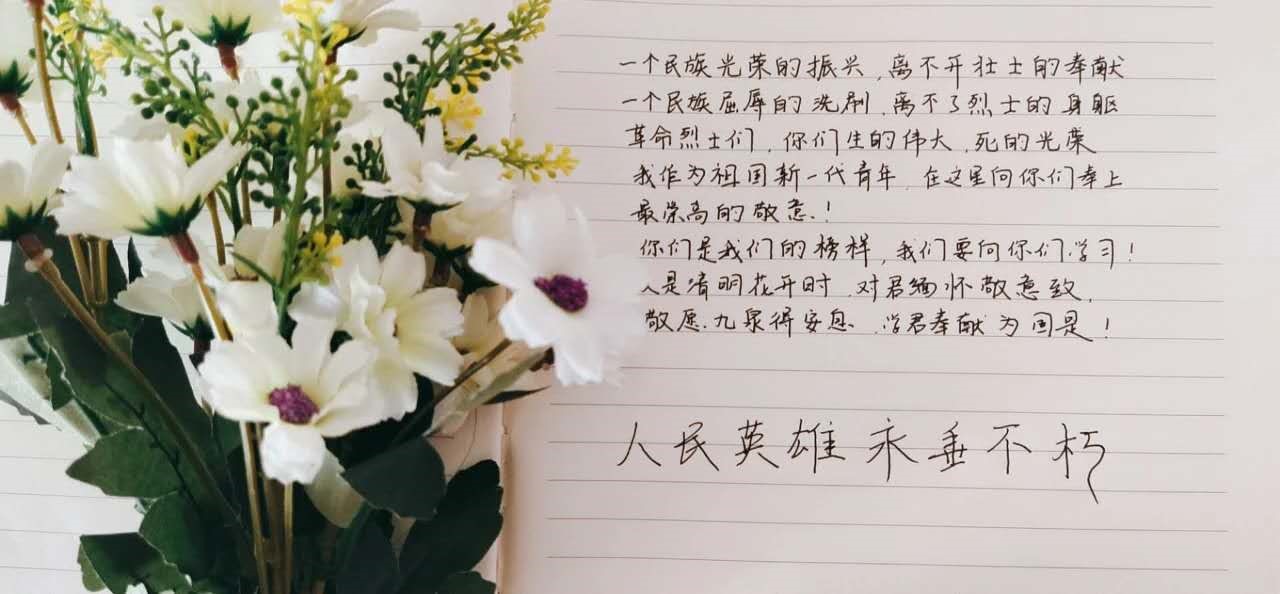 一个民族光荣的振兴,离不开壮士的奉献
一个民族屈辱的洗刷,离不了烈士的身躯
革命烈士们,你们生的伟大,死的光荣
我作为祖国新一代青年,在这里向你们奉上
最崇高的敬意!
你们是我们的榜样,我们要向你们学习!
又是清明花开时,对君缅怀敬意致,
敬愿九泉得安息,学君奉献为国是!
人民英雄永垂不朽